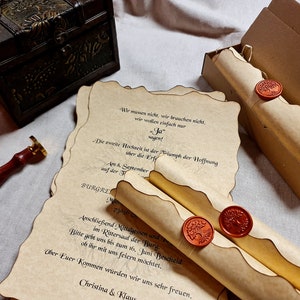 Wir müssen nicht, wir brauchen nicht,
wir wollen einfach nur
„Ja“
sagen!
„Die zweite Hochzeit ist der Triumph der Hoffnung
über die
Am 6. September
auf der
Anschließend
im Rittersaal der Burg.
Bitte gebt uns bis zum 16. Juni Bescheid
ob ihr mit uns feiern möchtet.
Über Euer Kommen würden wir uns sehr freuen,
Christina & Klaus